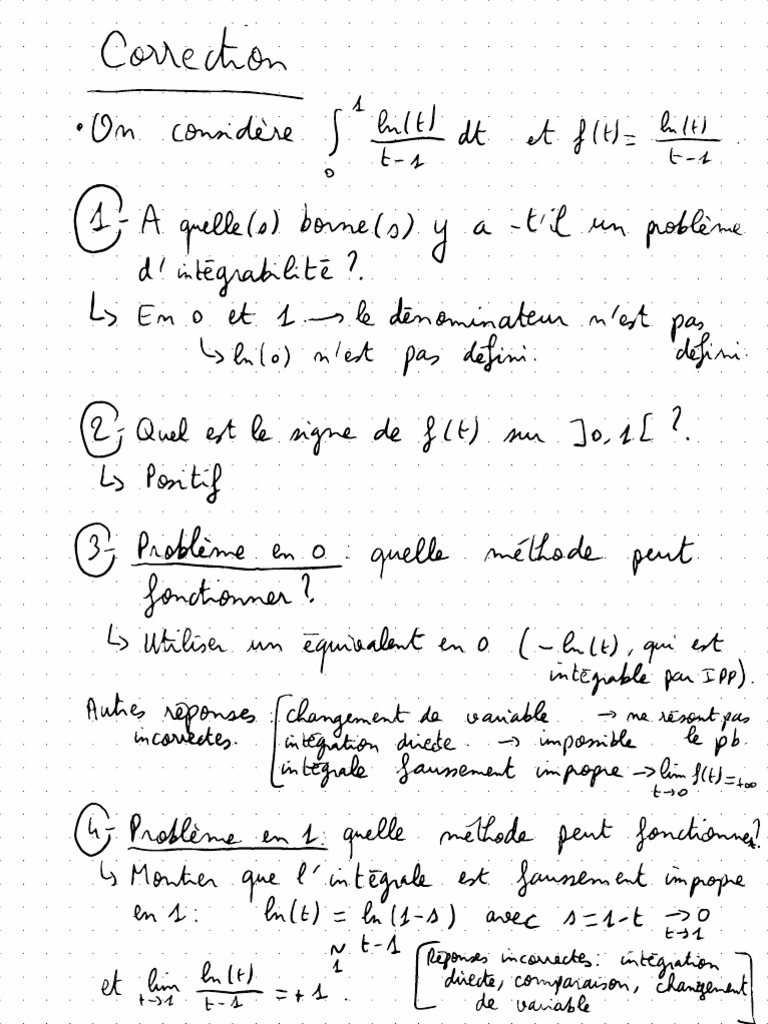 Correction
• On considère ∫₀¹ ln(t)/(t-1) dt et f(t) = ln(t)/(t-1).
1- A quelle(s) borne(s) y a-t'il un problème
d'intégrabilité ?
↳ En 0 et 1 → le dénominateur n'est pas
défini.
↳ ln(0) n'est pas défini.
2- Quel est le signe de f(t) sur ]0,1[ ?
↳ Positif
3- Problème en 0 : quelle méthode peut
fonctionner ?
↳ Utiliser un équivalent en 0 (-ln(t), qui est
intégrable par IPP).
Autres réponses
incorrectes.
changement de variable → ne résout pas
le pb.
intégration directe → impossible
intégrale faussement impropre → lim t→0 f(t) = +∞
4- Problème en 1 : quelle méthode peut fonctionner ?
↳ Montrer que l'intégrale est faussement impropre
en 1 : ln(t) = ln(1-s) avec s = 1-t → 0
t→1
~ t-1
1
et lim t→1 ln(t)/(t-1) = +1.
[Réponses incorrectes : intégration
directe, comparaison, changement
de variable]